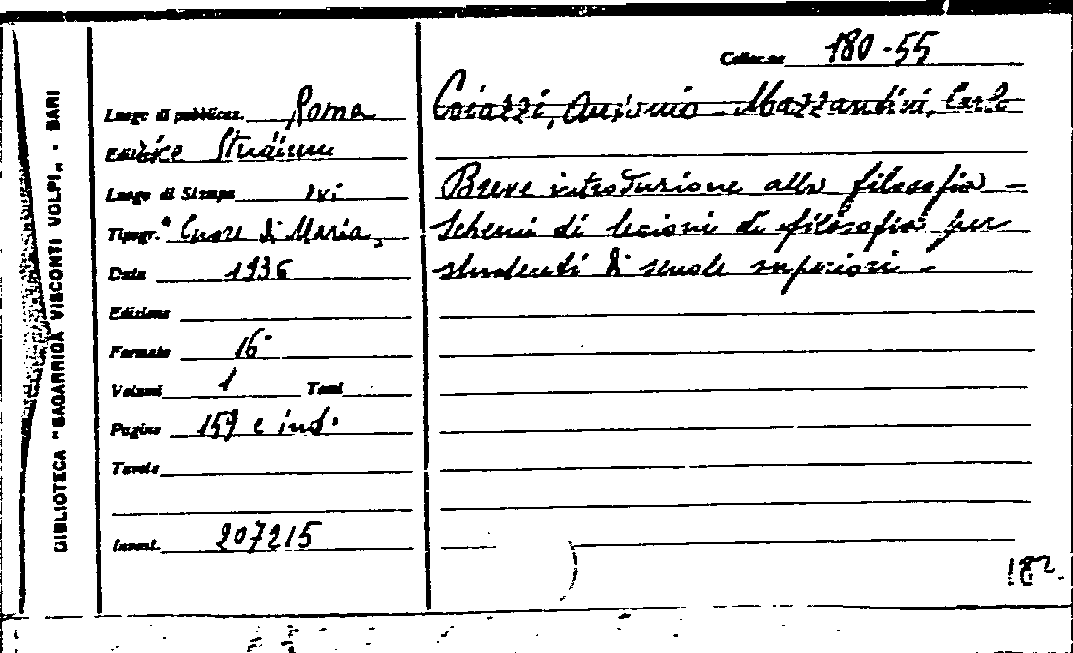 BIBLIOTECA "SAGARRIGA VISCONTI VOLPI" - BARI
Colloc.ne 180-55
Luogo di pubblicaz. Roma
Editrice Studium
Luogo di Stampa ivi
Tipogr. "Cuore di Maria"
Data 1936
Edizione
Formato 16°
Volumi 1 Tomi
Pagine 159 e ind.
Tavole
Invent. 207215
Cojazzi, Antonio - Mazzantini, Carlo
Breve introduzione alla filosofia -
Schemi di lezioni di filosofia per
studenti di scuole superiori -
182.